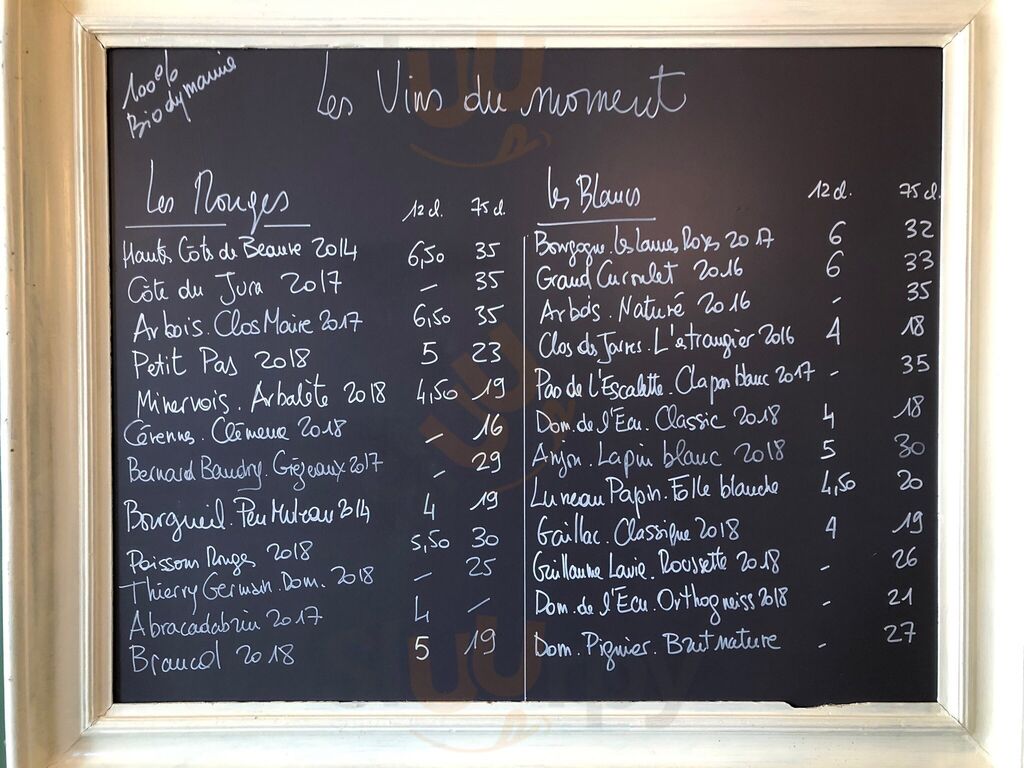 100%
Biodynamie
Les Vins du moment
Les Rouges 12 cl. 75 cl.
Hautes Côte de Beaune 2014 6,50 35
Côte du Jura 2017 - 35
Arbois. Clos Maire 2017 6,50 35
Petit Pas 2018 5 23
Minervois. Arbalète 2018 4,50 19
Cévennes. Clémence 2018 - 16
Bernard Baudry. Grézeaux 2017 - 29
Bourgueil. Peu Muleau 2014 4 19
Poisson Rouge 2018 5,50 30
Thierry Germain. Dom. 2018 - 25
Abracadabrin 2017 4 -
Braucol 2018 5 19
Les Blancs 12 cl. 75 cl.
Bourgogne. les 2017 6 32
Grand Curoulet 2016 6 33
Arbois. Naturé 2016 - 35
Clos des Jarres. L'étrangier 2016 4 18
Pas de l'Escalette. Clapas blanc 2017 - 35
Dom. de l'Ecu. Classic 2018 4 18
Anjou. Lapin blanc 2018 5 30
Luneau Papin. Folle blanche 4,50 20
Gaillac. Classique 2018 4 19
Guillaume Lavie. Roussette 2018 - 26
Dom. de l'Ecu. Orthogneiss 2018 - 21
Dom. Pignier. Brut nature - 27